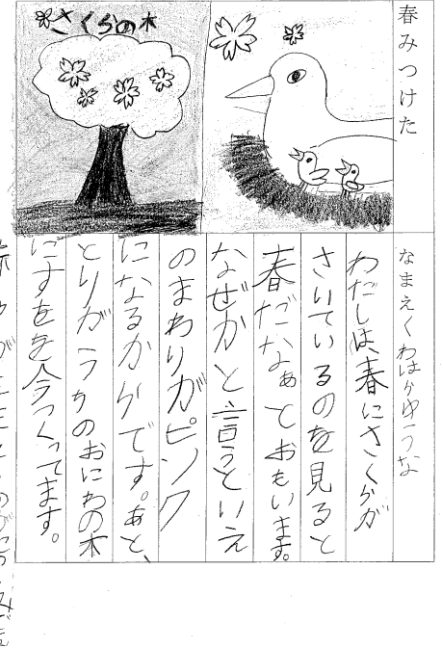 春みつけた
さくらの木
なまえくわはらゆうな
わたしは、春にさくらが
さいているのを見ると
春だなぁとおもいます。
なぜかと言うといえ
のまわりがピンク
になるからです。あと、
とりがうちのおにわの木
にすをを今つくってます。